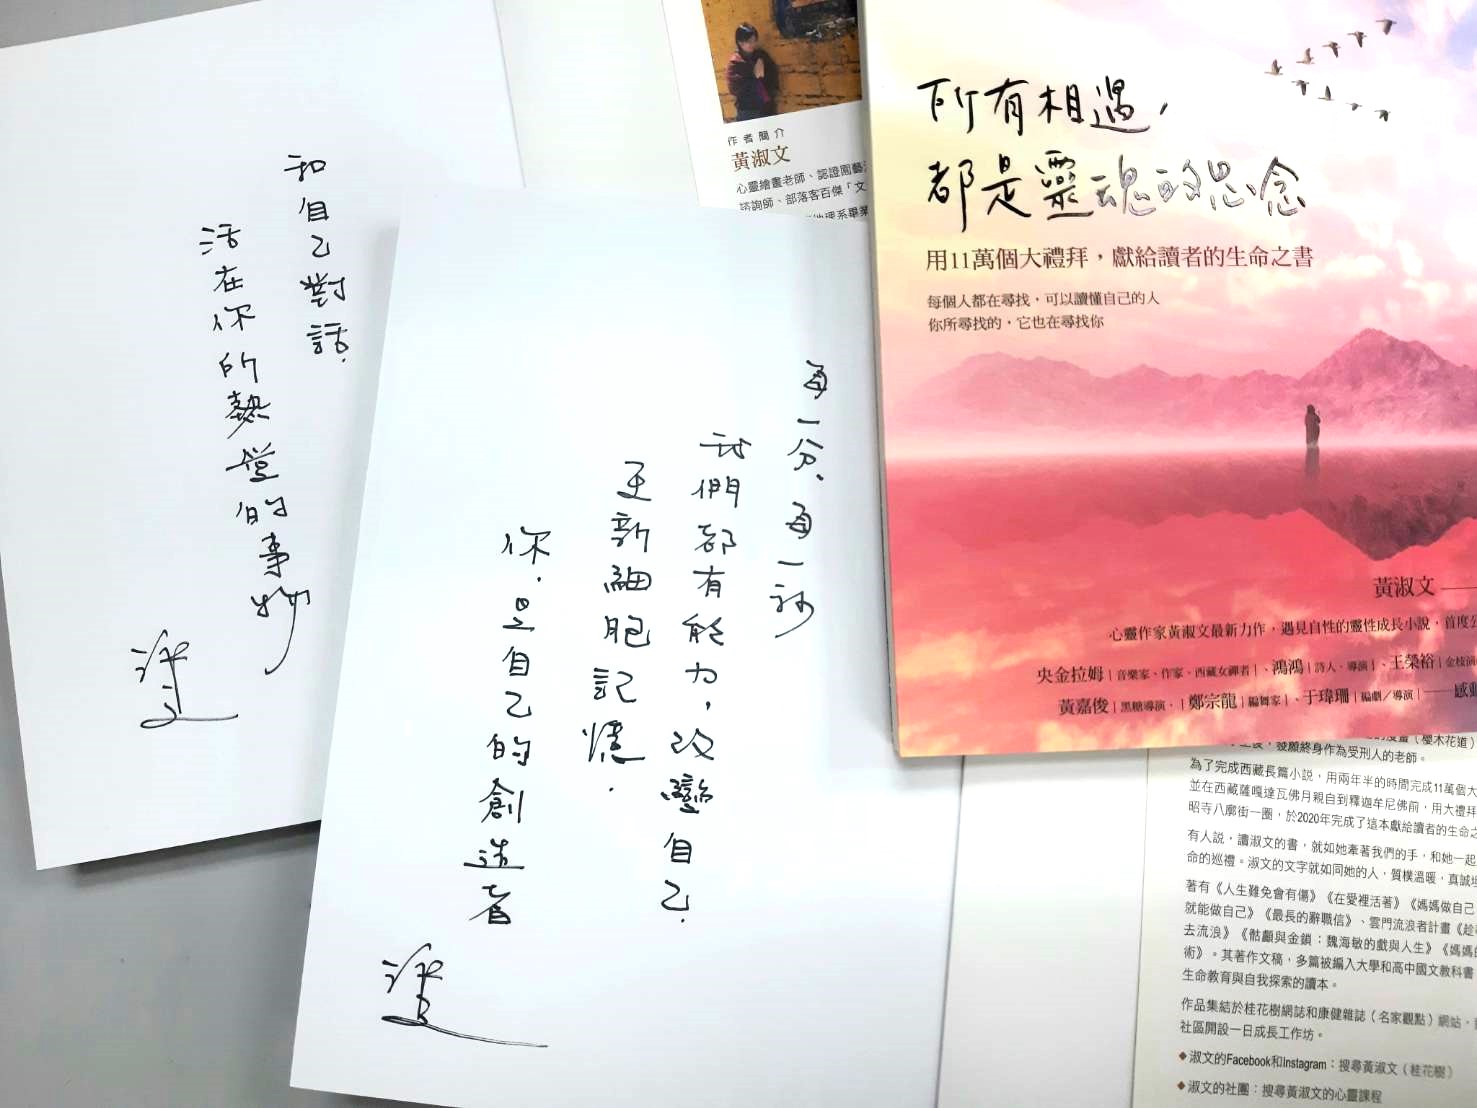 和自己對話.
活在你的熱愛的事物
每一分、每一秒
我們都有能力，改變自己.
更新細胞記憶.
你.是自己的創造者
作者簡介
黃淑文
心靈繪畫老師、認證園藝
諮詢師、部落客百傑「文
地理系畢業
所有相遇，
都是靈魂的思念
用11萬個大禮拜，獻給讀者的生命之書
每個人都在尋找，可以讀懂自己的人
你所尋找的，它也在尋找你
黃淑文
心靈作家黃淑文最新力作，遇見自性的靈性成長小說，首度公
央金拉姆|音樂家、作家、西藏女禪者|、鴻鴻|詩人、導演|、王榮裕|金枝演
黃嘉俊|黑糖導演.|鄭宗龍|編舞家|、于瑋珊|編劇／導演|
漫畫（櫻木花道）
，發願終身作為受刑人的老師。
為了完成西藏長篇小說，用兩年半的時間完成11萬個大
並在西藏薩嘎達瓦佛月親自到釋迦牟尼佛前，用大禮拜
昭寺八廓街一圈，於2020年完成了這本獻給讀者的生命之
有人說，讀淑文的書，就如她牽著我們的手，和她一起
命的巡禮。淑文的文字就如同她的人，質樸溫暖，真誠
著有《人生難免會有傷》《在愛裡活著》《媽媽做自己
就能做自己》《最長的辭職信》、雲門流浪者計畫《趁
去流浪》《骷髏與金鎖：魏海敏的戲與人生》《媽媽的
術》。其著作文稿，多篇被編入大學和高中國文教科書
生命教育與自我探索的讀本。
作品集結於桂花樹網誌和康健雜誌（名家觀點）網站，
社區開設一日成長工作坊。
◆淑文的Facebook和Instagram：搜尋黃淑文（桂花樹）
◆淑文的社團：搜尋黃淑文的心靈課程